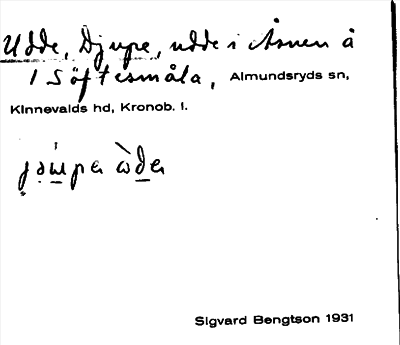 Udde, Djupe, udde i Åsnen å
1 Söftesmåla, Almundsryds sn,
Kinnevalds hd, Kronob. l.
Sigvard Bengtson 1931